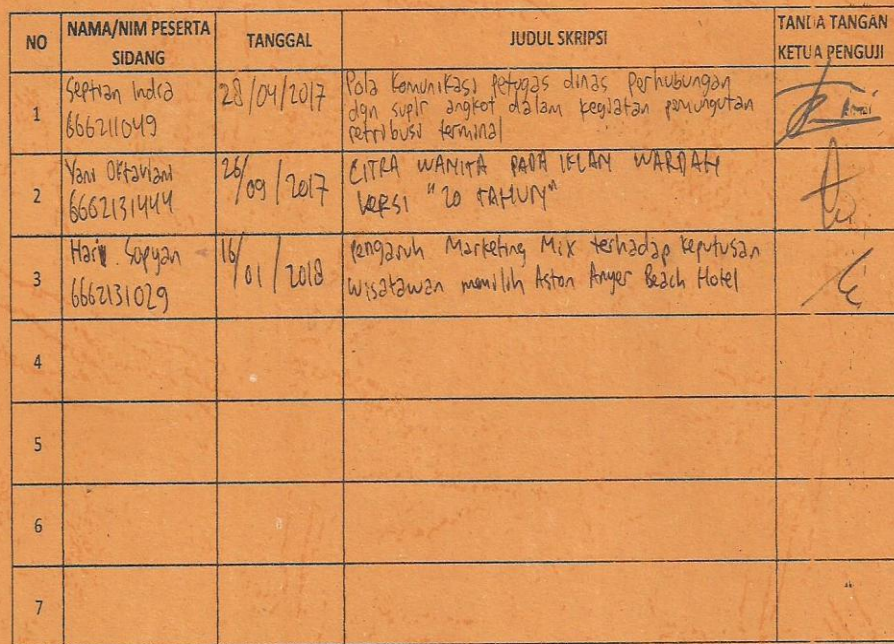 NO NAMA/NIM PESERTA SIDANG TANGGAL JUDUL SKRIPSI TANDA TANGAN KETUA PENGUJI
1
Septian Indra
666211049
28/04/2017
Pola komunikasi petugas dinas perhubungan
dgn supir angkot dalam kegiatan pemungutan
retribusi terminal
2
Yani Oktaviani
6662131444
26/09/2017
CITRA WANITA PADA IKLAN WARDAH
VERSI "20 TAHUN"
3
Hari Sopyan
6662131029
16/01/2018
pengaruh Marketing Mix terhadap keputusan
wisatawan memilih Aston Anyer Beach Hotel
4
5
6
7